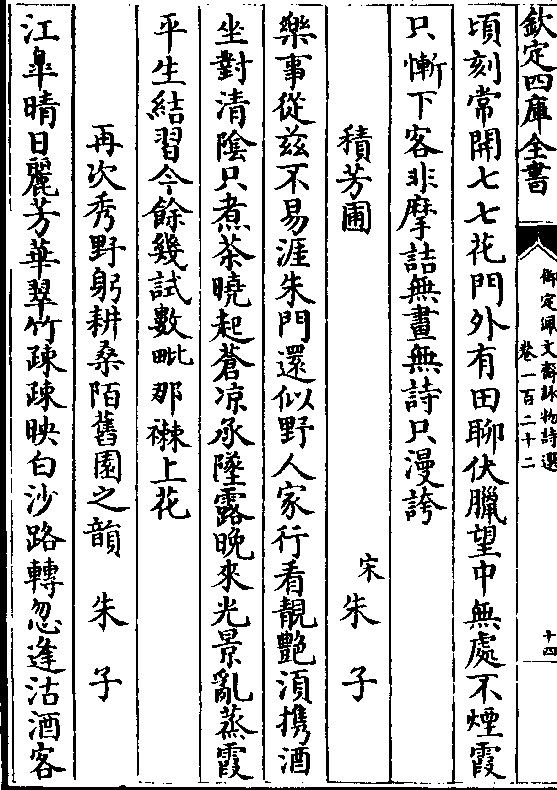 欽定四庫全書
御定佩文齋詠物詩選
卷一百二十二
十四
頃刻常開七七花門外有田聊伏臘望中無處不煙霞
只慚下客非摩詰無畫無詩只漫誇
積芳圃
宋朱子
樂事從兹不易涯朱門還似野人家行看靚艷湏携酒
坐對清陰只煮茶曉起蒼凉承墜露晚來光景亂蒸霞
平生結習今餘幾試數毗那襟上花
再次秀野躬耕桑陌舊園之韻
朱子
江臯晴日麗芳華翠竹疎疎映白沙路轉忽逢沽酒客